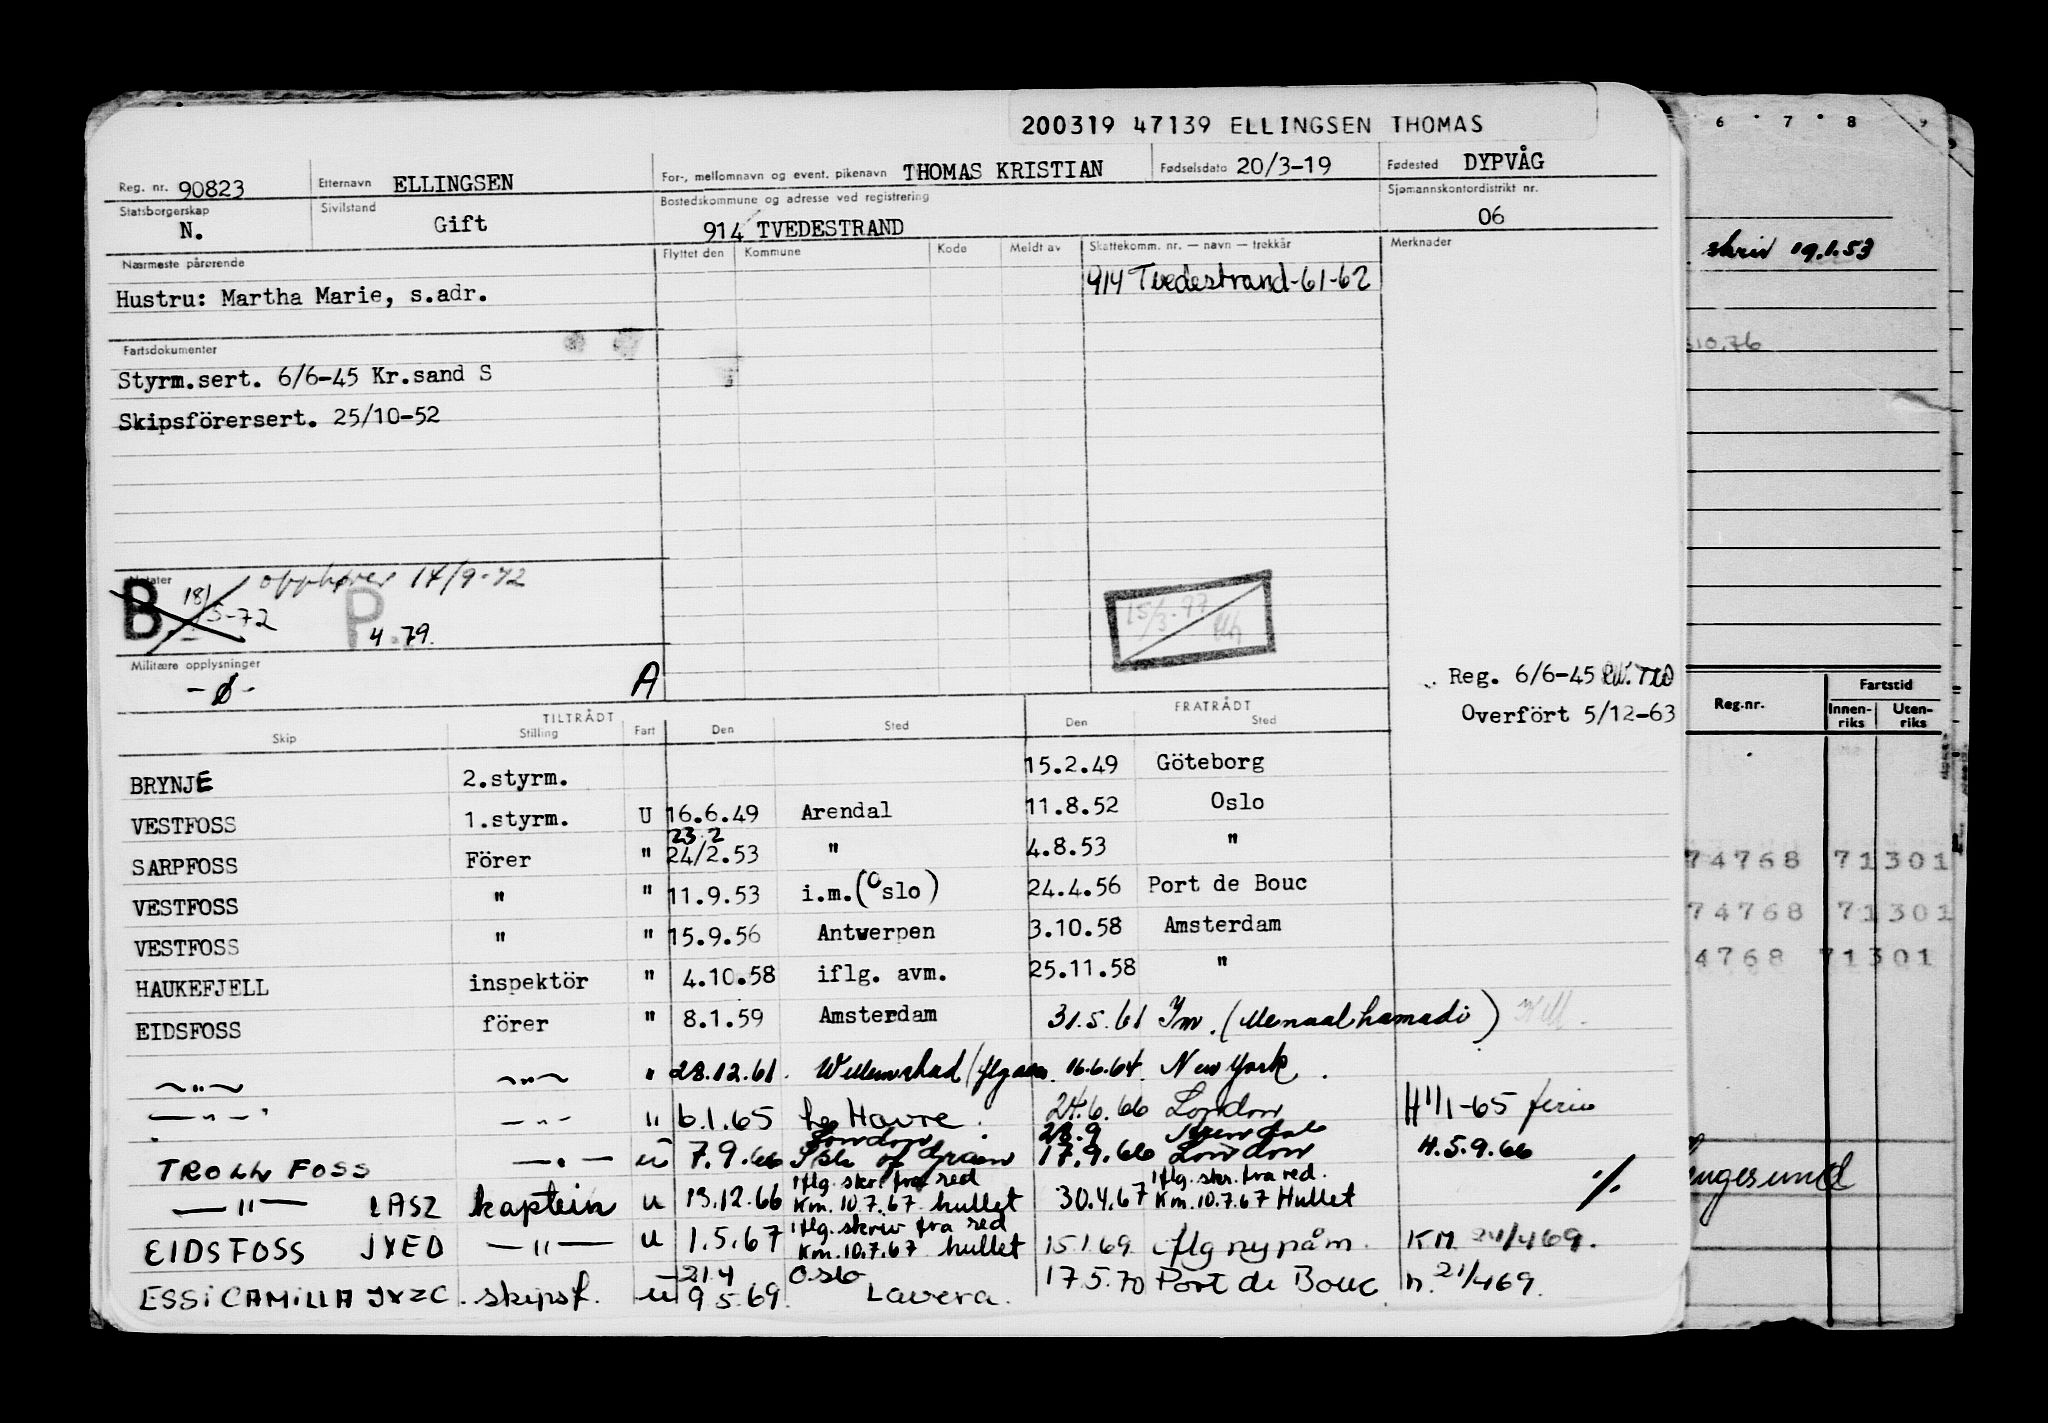 200319 47139 ELLINGSEN THOMAS
Reg. nr. 90823 Etternavn ELLINGSEN For-, mellomnavn og event. pikenavn THOMAS KRISTIAN Fødselsdato 20/3-19 Fødested DYPVÅG
Statsborgerskap N. Sivilstand Gift Bostedskommune og adresse ved registrering 914 TVEDESTRAND Sjømannskontordistrikt nr. 06
Nærmeste pårørende Flyttet den Kommune Kode Meldt av Skattekomm. nr. — navn — trekkår Merknader
Hustru: Martha Marie, s.adr. 914 Tvedestrand-61-62
Fartsdokumenter
Styrm.sert. 6/6-45 Kr.sand S
Skipsförersert. 25/10-52
Notater
B 18/5-72 opphører 14/9-72
P 4.79.
15/3.97
Militære opplysninger
-Ø- A
Reg. 6/6-45
Overfört 5/12-63
TILTRÅDT FRATRÅDT
Skip Stilling Fart Den Sted Den Sted
BRYNJE 2.styrm. 15.2.49 Göteborg
VESTFOSS 1.styrm. U 16.6.49 Arendal 11.8.52 Oslo
23.2
SARPFOSS Förer " 24/2.53 " 4.8.53 "
VESTFOSS " " 11.9.53 i.m.(Oslo) 24.4.56 Port de Bouc
VESTFOSS " " 15.9.56 Antwerpen 3.10.58 Amsterdam
HAUKEFJELL inspektör " 4.10.58 iflg. avm. 25.11.58 "
EIDSFOSS förer " 8.1.59 Amsterdam 31.5.61 Im. (Menaalhamadi)
—"— —"— " 28.12.61. 16.6.64. New York.
—"— —"— " 6.1.65 le Havre. 24.6.66 London H 11/1-65 ferie
London 28.9
TROLL FOSS —"— u 7.9.66 Isle of Grain 17.9.66 London H.5.9.66
iflg. skr. fra red iflg. skr. fra red.
—"— LASZ kaptein u 13.12.66 Km. 10.7.67 hullet 30.4.67 Km. 10.7.67 Hullet %
iflg. skriv fra red
EIDSFOSS JXEO —"— u 1.5.67 Km. 10.7.67 hullet 15.1.69 iflg ny påm. KM 21/469.
21.4 Oslo
ESSI CAMILLA JXZC. skipsf. u 9.5.69. Lavera. 17.5.70 Port de Bouc h. 21/469.
6 7 8 9
skriv 19.1.53
10.76
Reg.nr. Fartstid
Innen-riks Uten-riks
74768 71301
74768 71301
4768 71301